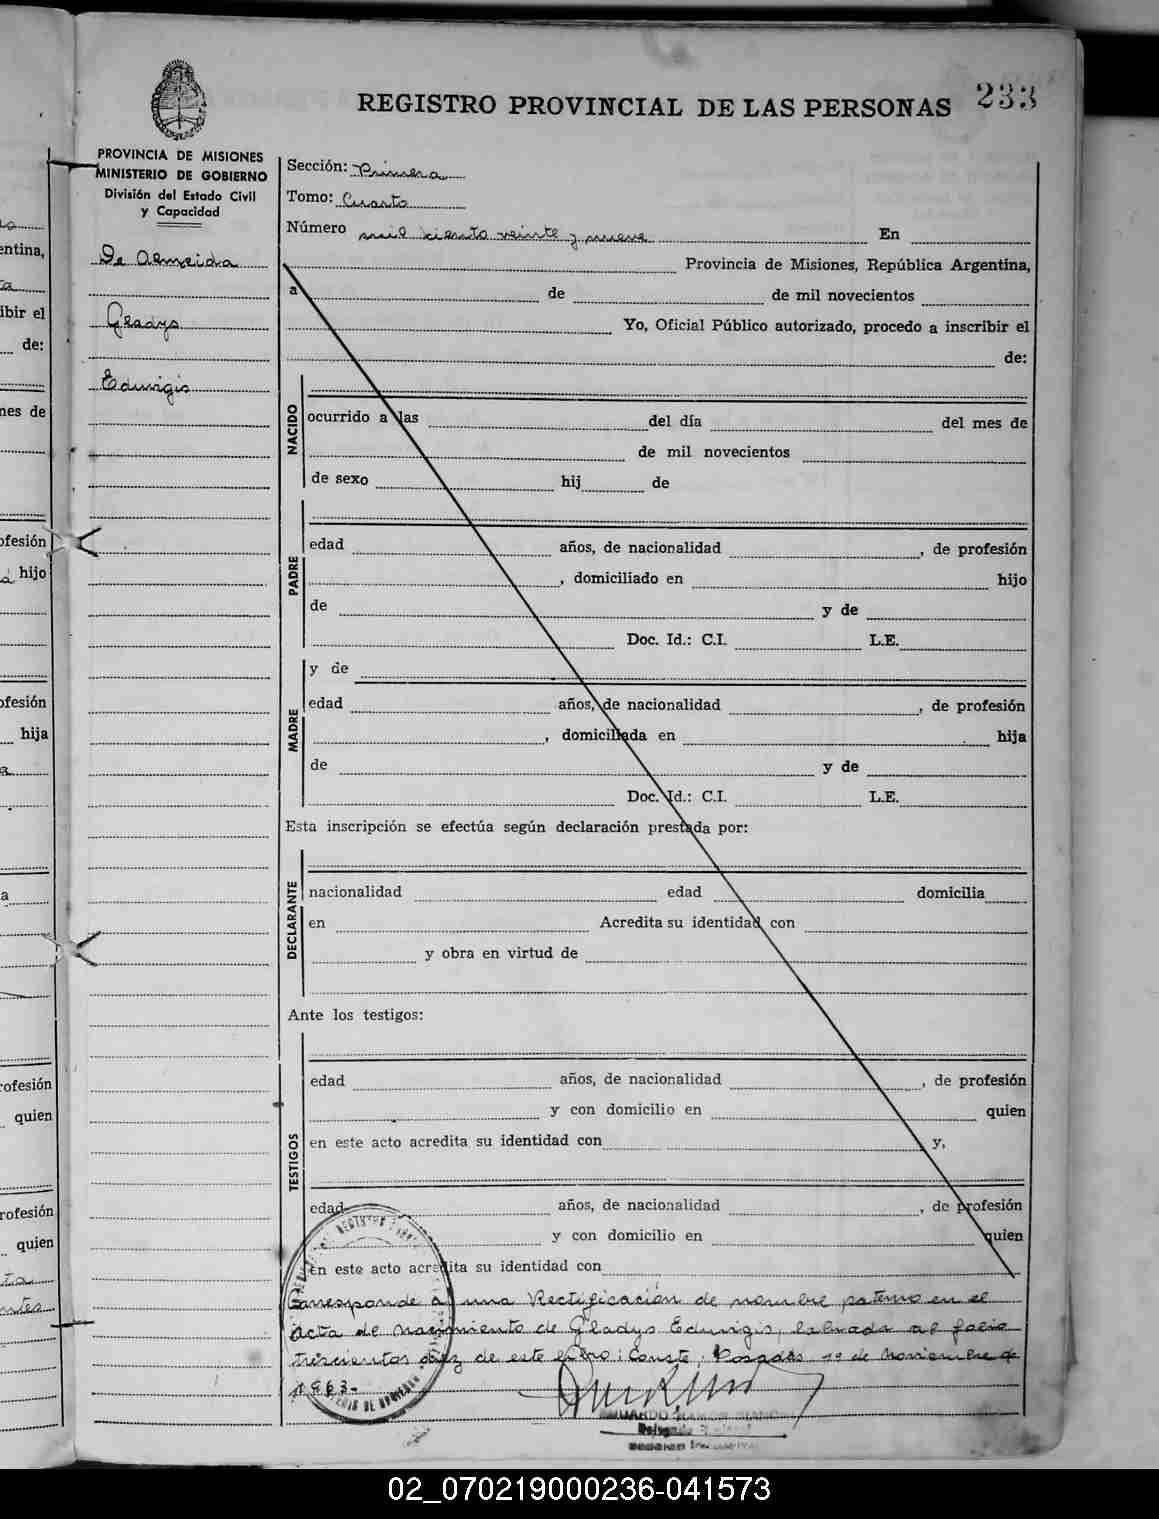 REGISTRO PROVINCIAL DE LAS PERSONAS
233
PROVINCIA DE MISIONES
MINISTERIO DE GOBIERNO
División del Estado Civil
y Capacidad
De Almeida
Gladys
Eduvigis
Sección: Primera
Tomo: Cuarto
Número mil ciento veinte y nueve En
Provincia de Misiones, República Argentina,
a de de mil novecientos
Yo, Oficial Público autorizado, procedo a inscribir el
de:
NACIDO
ocurrido a las del día del mes de
de mil novecientos
de sexo hij de
PADRE
edad años, de nacionalidad , de profesión
, domiciliado en hijo
de y de
Doc. Id.: C.I. L.E.
y de
MADRE
edad años, de nacionalidad , de profesión
, domiciliada en hija
de y de
Doc. Id.: C.I. L.E.
Esta inscripción se efectúa según declaración prestada por:
DECLARANTE
nacionalidad edad domicilia
en Acredita su identidad con
y obra en virtud de
Ante los testigos:
TESTIGOS
edad años, de nacionalidad , de profesión
y con domicilio en quien
en este acto acredita su identidad con y,
edad años, de nacionalidad , de profesión
y con domicilio en quien
en este acto acredita su identidad con
Corresponde a una Rectificación de nombre paterno en el
acta de nacimiento de Gladys Eduvigis, labrada al folio
trescientos diez de este libro: Conste, Posadas 19 de Noviembre de
1963-
EDUARDO RAMON
Delegado
entina,
ibir el
de:
mes de
ofesión
hijo
ofesión
hija
a
rofesión
quien
rofesión
quien
02_070219000236-041573